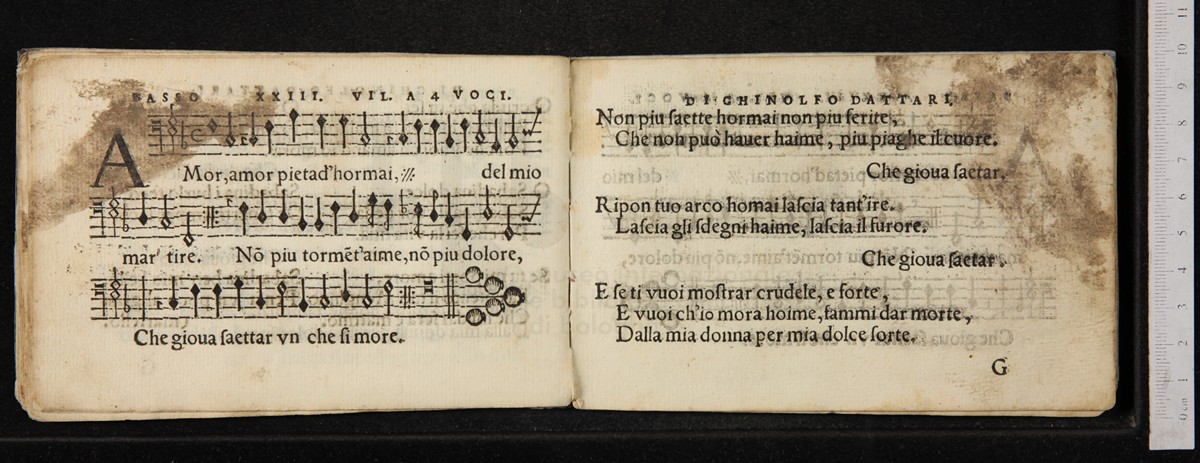 BASSO XXIII. VIL. A 4 VOCI.
AMor, amor pietad'hormai, ://: del mio
mar' tire. Nõ piu tormẽt'aime, nõ piu dolore,
Che gioua ſaettar vn che ſi more.
DI GHINOLFO DATTARI,
Non piu ſaette hormai non piu ferite,
Che non può hauer haime, piu piaghe il cuore.
Che gioua ſaetar.
Ripon tuo arco homai laſcia tant'ire.
Laſcia gli ſdegni haime, laſcia il furore.
Che gioua ſaetar.
E ſe ti vuoi moſtrar crudele, e forte,
E vuoi ch'io mora hoime, fammi dar morte,
Dalla mia donna per mia dolce ſorte.
G
0 cm 1 2 3 4 5 6 7 8 9 10 11